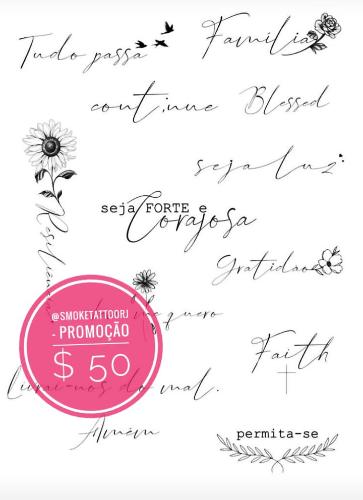 Tudo passa
Família
cont;nue
Blessed
seja luz
seja FORTE e
Corajosa
Resiliência
Gratidão
@SMOKETATTOORJ
- PROMOÇÃO
$ 50
quero
Faith
do mal.
Amém
permita-se